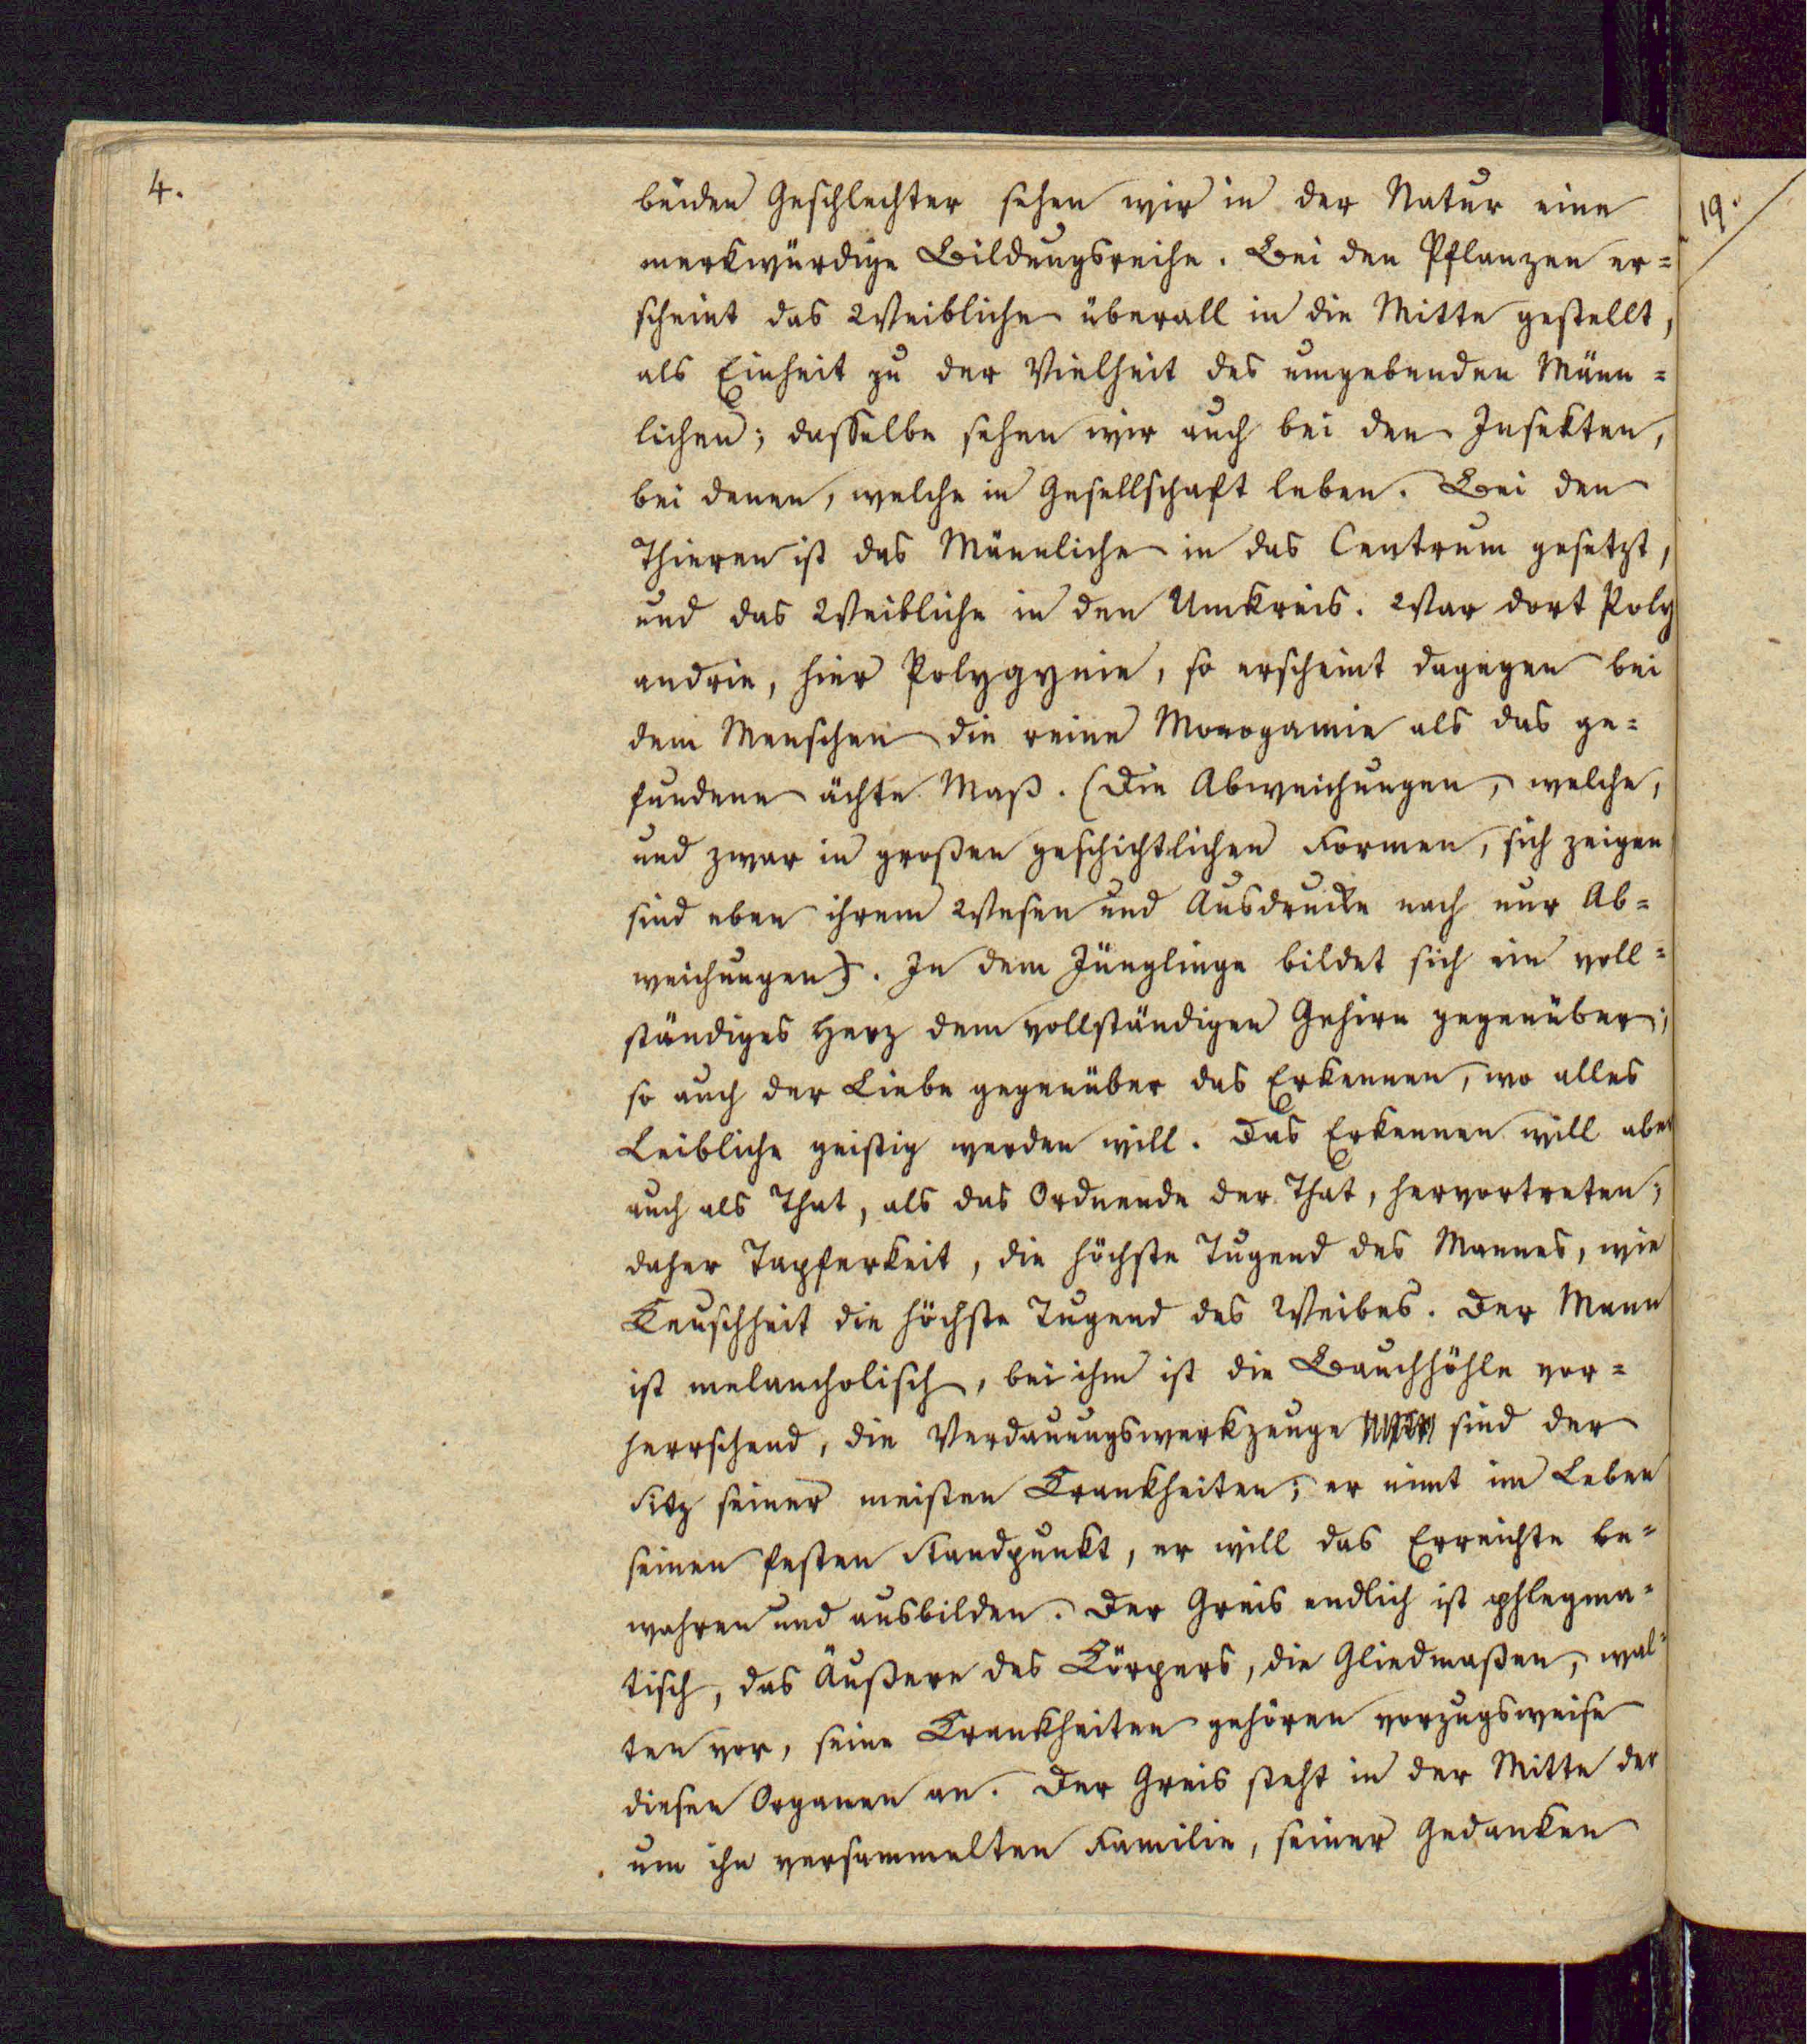 4.
beiden Geschlechter sehen wir in der Natur eine
merkwürdige Bildungsreihe. Bei den Pflanzen er=
scheint das Weibliche überall in die Mitte gestellt,
als Einheit zu der Vielheit des umgebenden Männ=
lichen; dasselbe sehen wir auch bei den Insekten,
bei denen, welche in Gesellschaft leben. Bei den
Thieren ist das Männliche in das Centrum gesetzt,
und das Weibliche in den Umkreis. War dort Poly
andrie, hier Polygynie, so erscheint dagegen bei
dem Menschen die reine Monogamie als das ge=
fundene ächte Maß. (Die Abweichungen, welche,
und zwar in großen geschichtlichen Formen, sich zeigen
sind eben ihrem Wesen und Ausdrucke nach nur Ab=
weichungen). In dem Jünglinge bildet sich ein voll=
ständiges Herz dem vollständigen Gehirn gegenüber;
so auch der Liebe gegenüber das Erkennen, wo alles
Leibliche geistig werden will. Das Erkennen will aber
auch als That, als das Ordnende der That, hervortreten;
daher Tapferkeit, die höchste Tugend des Mannes, wie
Keuschheit die höchste Tugend des Weibes. Der Mann
ist melancholisch, bei ihm ist die Bauchhöhle vor=
herrschend, die Verdauungswerkzeuge sind der
Sitz seiner meisten Krankheiten; er nimt im Leben
seinen festen Standpunkt, er will das Erreichte be=
wahren und ausbilden. Der Greis endlich ist phlegma=
tisch, das Äußere des Körpers, die Gliedmaßen, wal=
ten vor, seine Krankheiten gehören vorzugsweise
diesen Organen an. Der Greis steht in der Mitte der
um ihn versammelten Familie, seiner Gedanken
19.